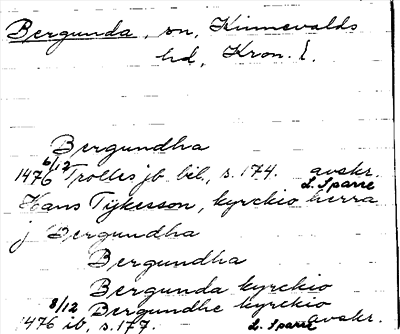 Bergunda, sn, Kinnevalds
hd, Kron. l.
Bergundha
1476 6/12 Trolles jb bil, s. 174. avskr.
L. Sparre
Hans Tijkesson, kyrckio herra
j Bergundha
Bergundha
Bergunda kyrckio
8/12 Bergundhe kyrckio
1476 ib, s. 177. L. Sparre avskr.